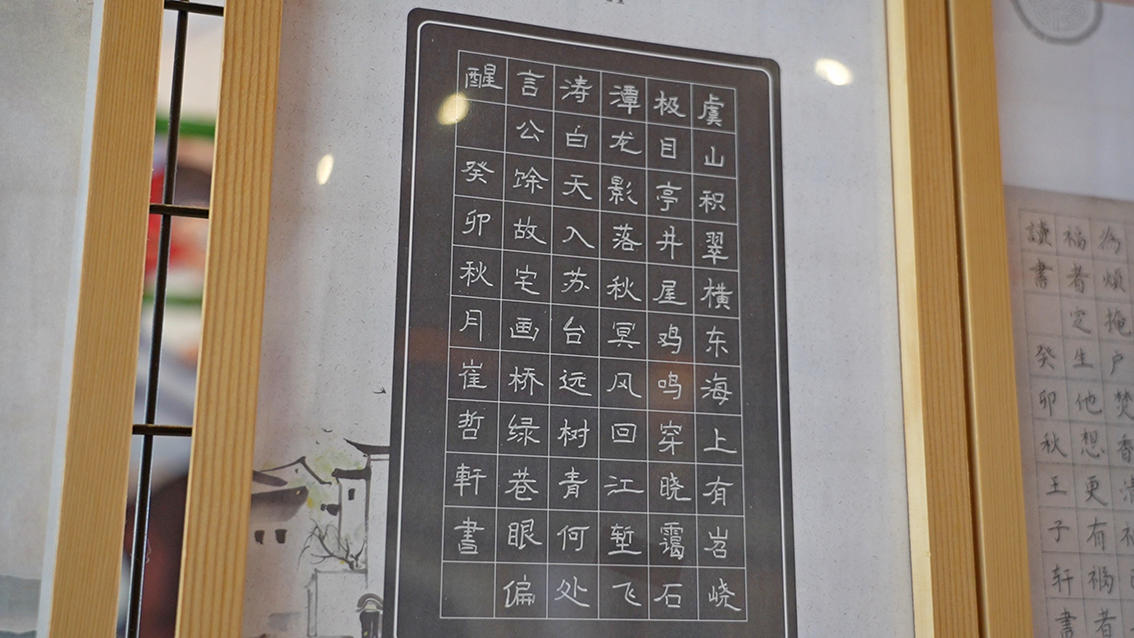 虞山积翠横东海上有岧峣
极目亭井屋鸡鸣穿晓霭石
潭龙影落秋冥风回江堑飞
涛白天入苏台远树青何处
言公馀故宅画桥绿巷眼偏
醒 癸卯秋月崔哲軒書
為煩掩户焚香清
福者定生他想更有禍者
讀書 癸卯秋王子轩書